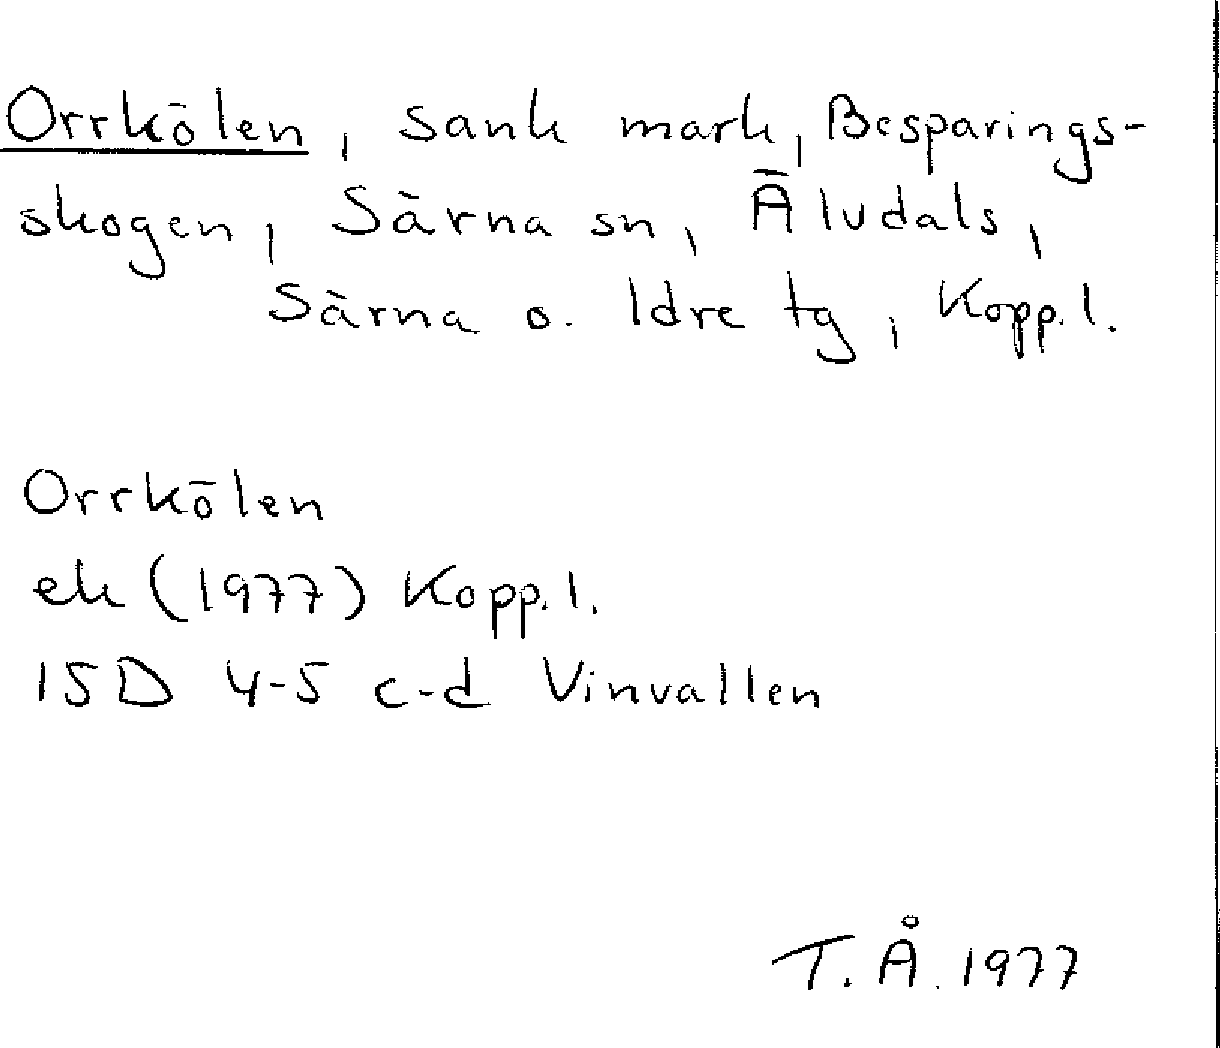 Orrkölen, sank mark, Besparings-
skogen, Särna sn, Älvdals,
Särna o. Idre tg, Kopp. l.
Orrkölen
ek (1977) Kopp. l.
15D 4-5 c-d Vinvallen
T. Å. 1977